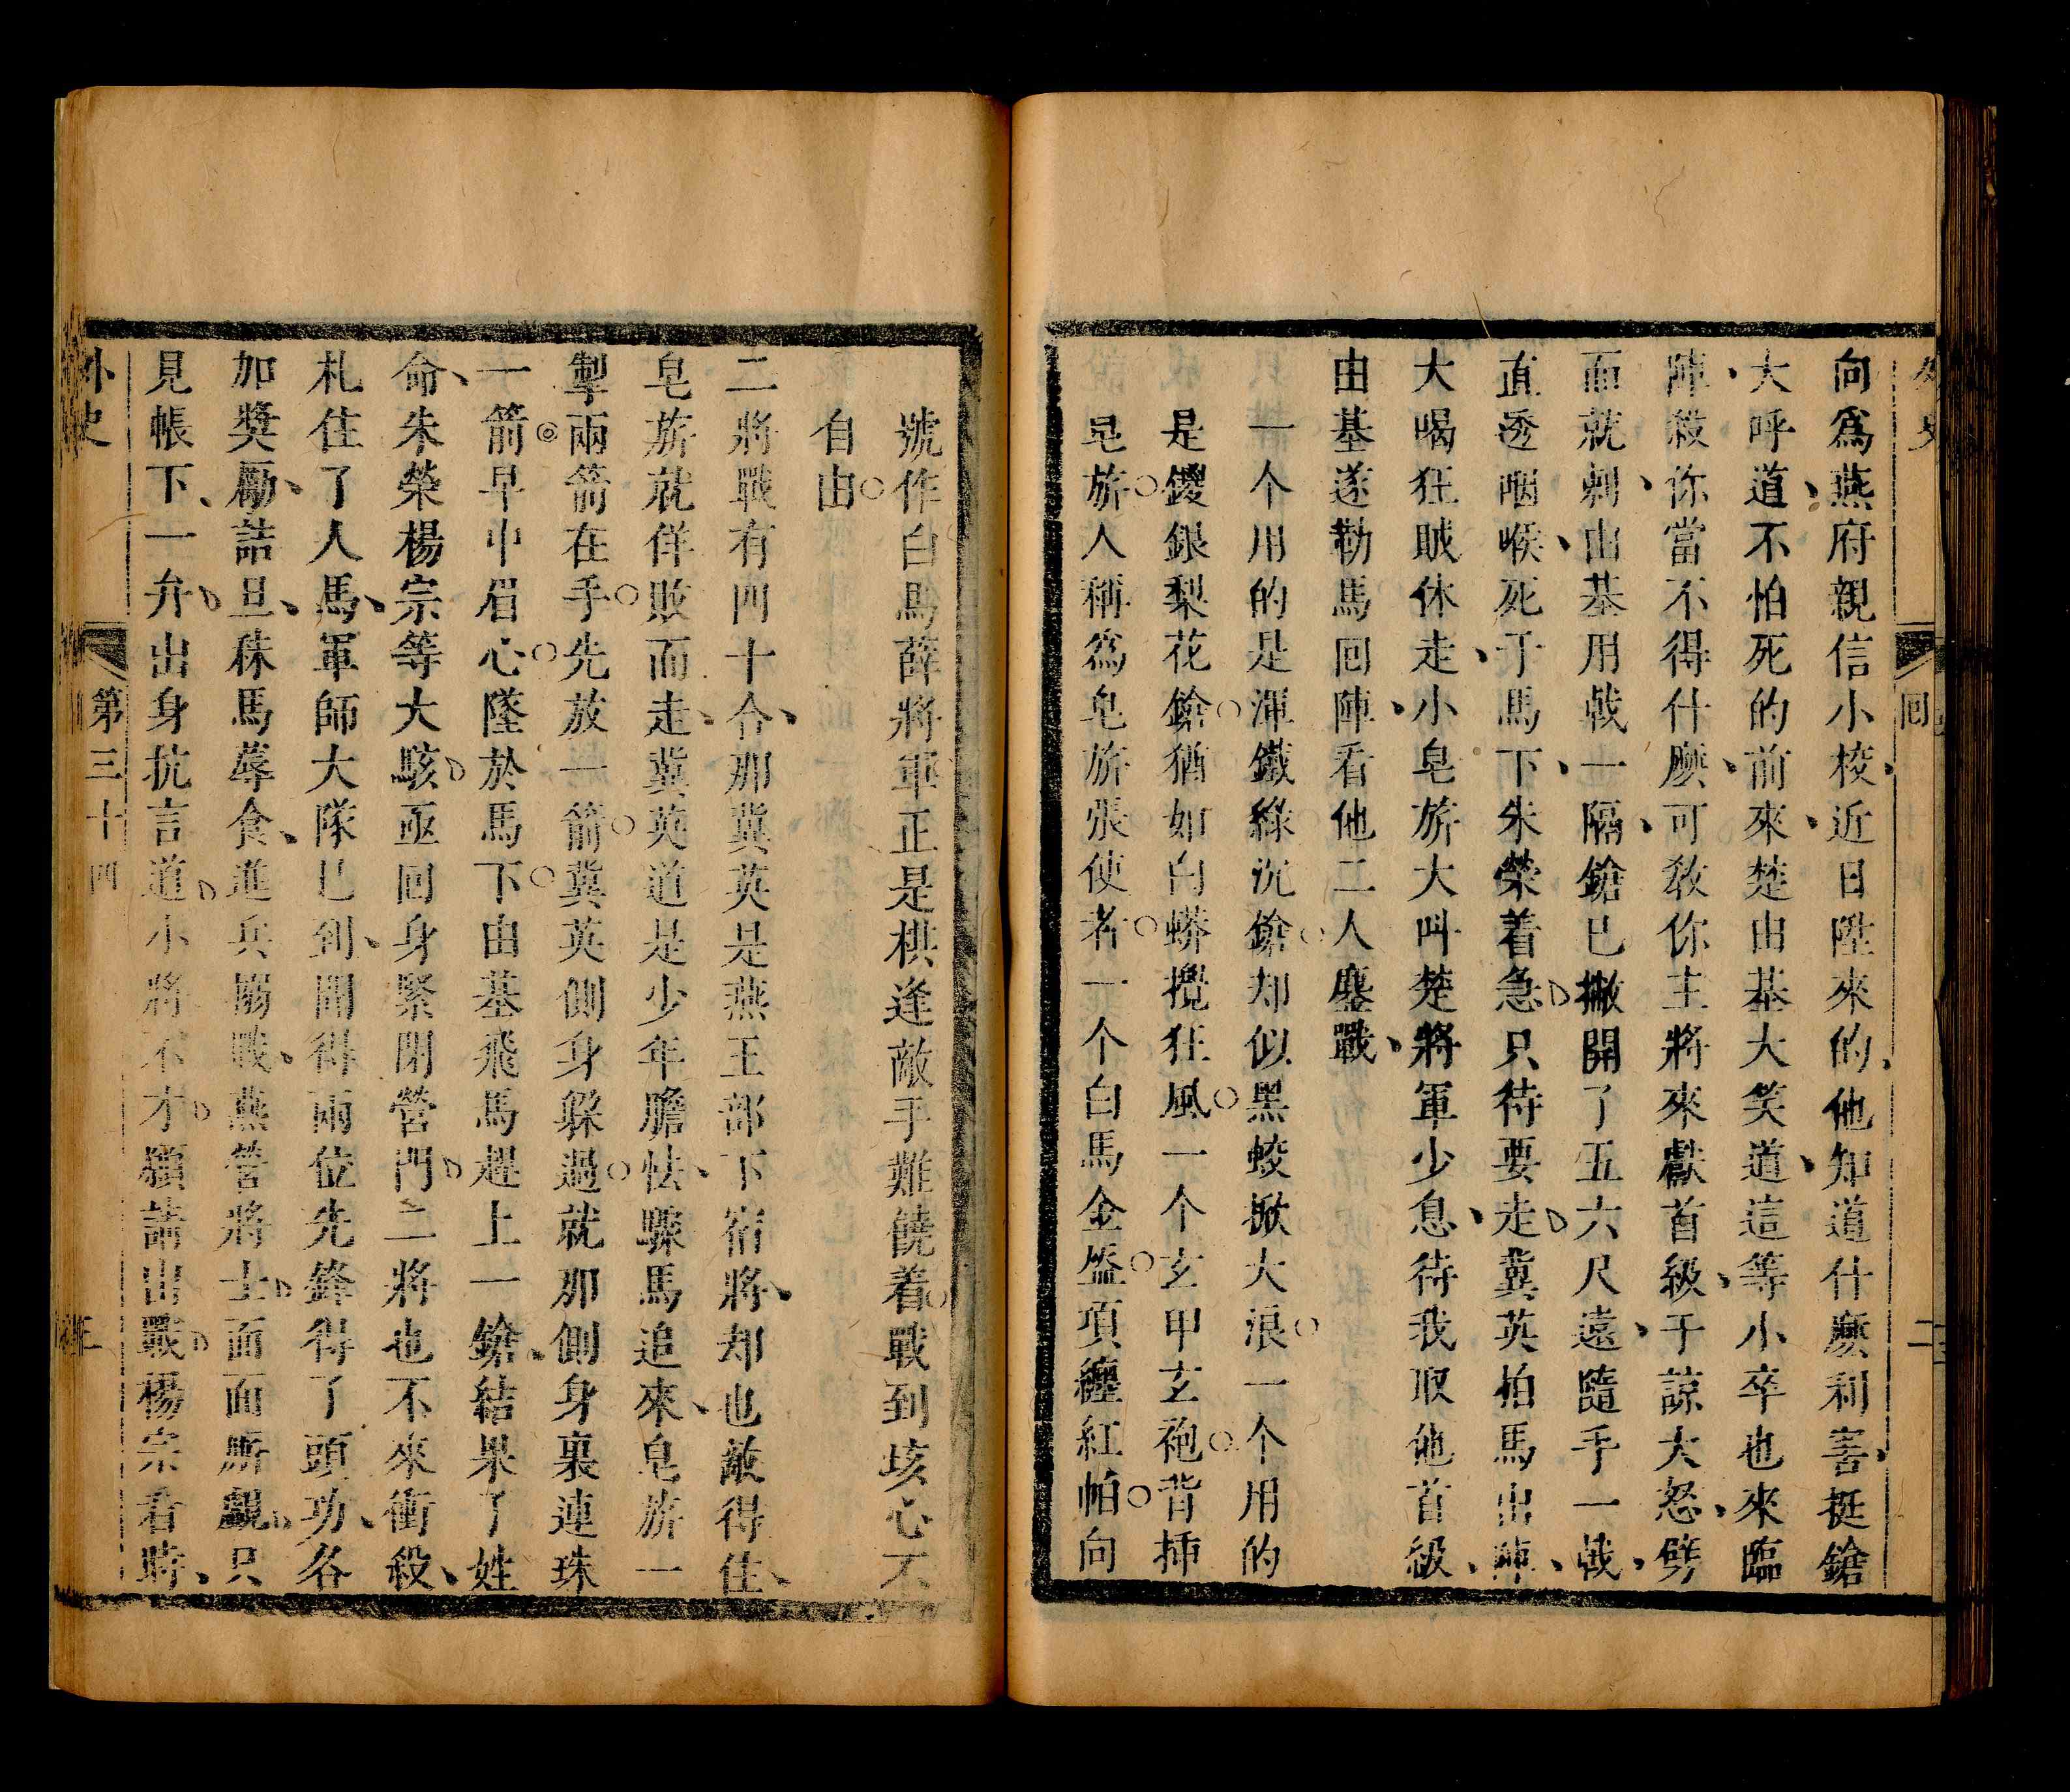 外史
回
二
向爲燕府親信小校近日陞來的他知道什麽利害挺鎗
大呼道不怕死的前來楚由基大笑道這等小卒也來臨
陣殺你當不得什麽可教你主將來獻首級于諒大怒劈
面就刺由基用戟一隔鎗已撇開了五六尺遠隨手一戟
直透咽喉死于馬下朱榮着急只待要走冀英拍馬出陣
大喝狂賊休走小皂旂大呌楚將軍少息待我取他首級
由基遂勒馬回陣看他二人鏖戰
一个用的是渾鐵綠沉鎗却似黑蛟掀大浪一个用的
是鑁銀梨花鎗猶如白蟒攪狂風一个玄甲玄袍背揷
皂旂人稱爲皂旂張使者一个白馬金盔項纏紅帕向
號作白馬薛將軍正是棋逢敵手難饒着戰到垓心不
自由
二將戰有四十合那冀英是燕王部下宿將却也敵得住
皂旂就佯敗而走冀英道是少年膽怯驟馬追來皂旂一
掣兩箭在手先放一箭冀英側身躱過就那側身裏連珠
一箭早中眉心墜於馬下由基飛馬趕上一鎗結果了姓
命朱榮楊宗等大駭亟回身緊閉營門二將也不來衝殺
札住了人馬軍師大隊已到聞得兩位先鋒得了頭功各
加奬勵詰旦秣馬蓐食進兵搦戰燕營將士面面厮覷只
見帳下一弁出身抗言道小將不才願請出戰楊宗看時
外史
第三十四